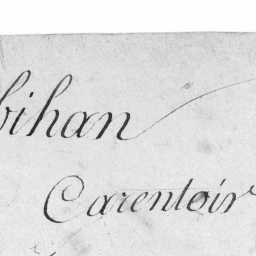 bihan
Carentoir